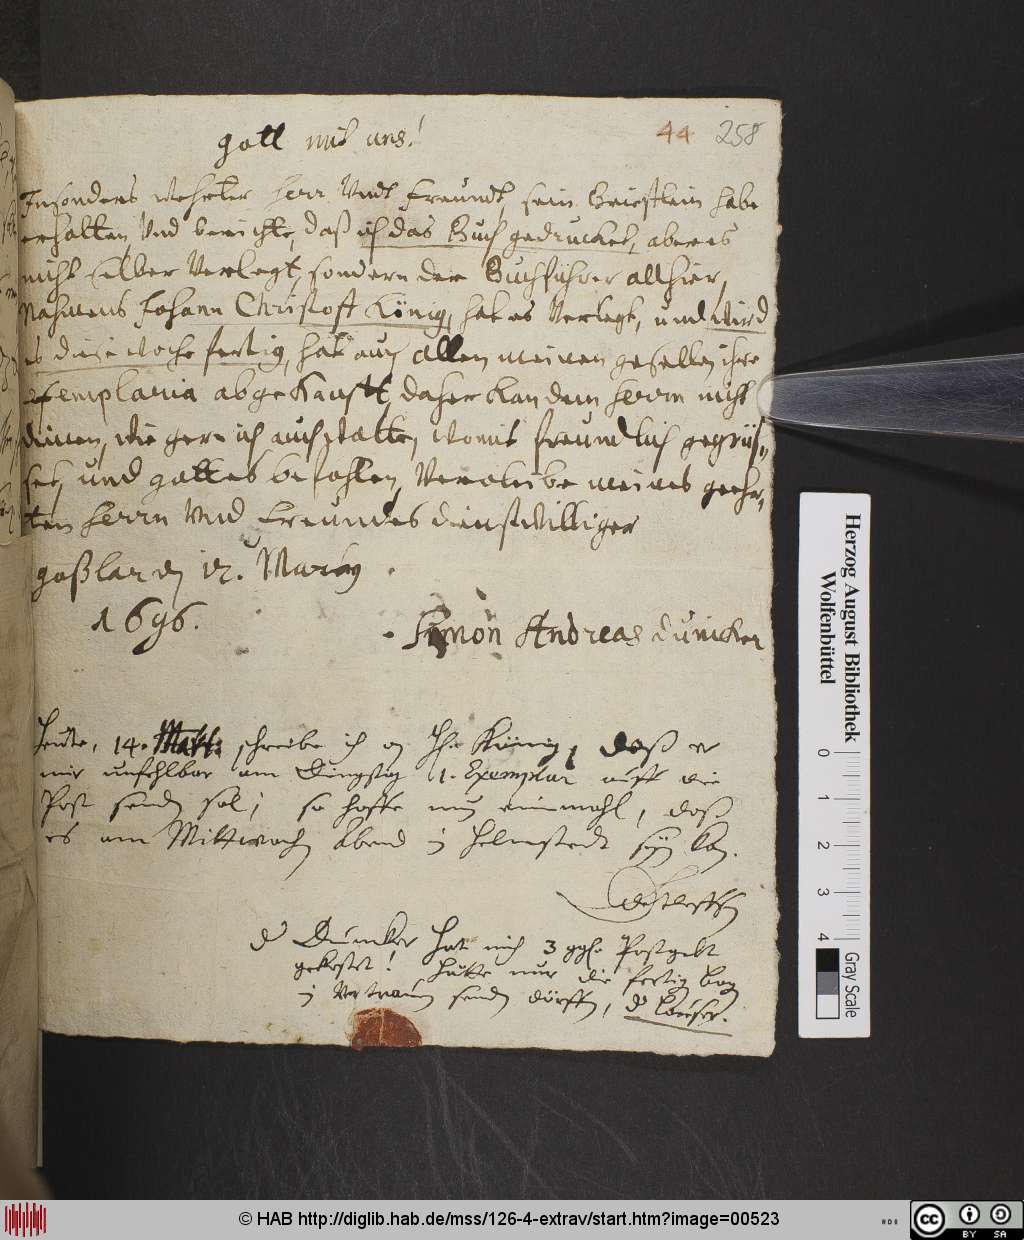 44 258
Gott mit uns!
Insonders wehrter Herr Undt Freundt, sein Briefflein habe
erhalten, Und berichte, daß ich das Buch gedrucket, aber es
nicht selber Verlegt, sondern der Buchführer allhier,
Nahmens Johann Christoff König, hat es Verlegt, und wird
es diese woche fertig, hat auch allen meinen gesellen ihre
Exemplaria abgekaufft, daher kan dem Herrn nicht
dienen, wie gern ich auch wolte, womit freundlich gegrüs-
set, und Gottes befohlen, Verbleibe meines geehr-
ten Herrn Und Freundes dienstwilliger
Goßlar den 12. Marty
1696.
Simon Andreas Duncker
Heute, 14. Mart. schreibe ich an König, daß er
mir unfehlbar am Dingstag 1. Exemplar auff die
Post senden sol; so hoffe nun einmahl, daß
es am Mittwochen Abend in Helmstedt seyn kan.
Detleffsen
Duncker hat mich 3 ggl. Postgelt
gekostet! Hätte nur die fertig
in Vertrauen senden dörffen,
Herzog August Bibliothek
Wolfenbüttel
0 1 2 3 4
Gray Scale
© HAB http://diglib.hab.de/mss/126-4-extrav/start.htm?image=00523
cc BY SA